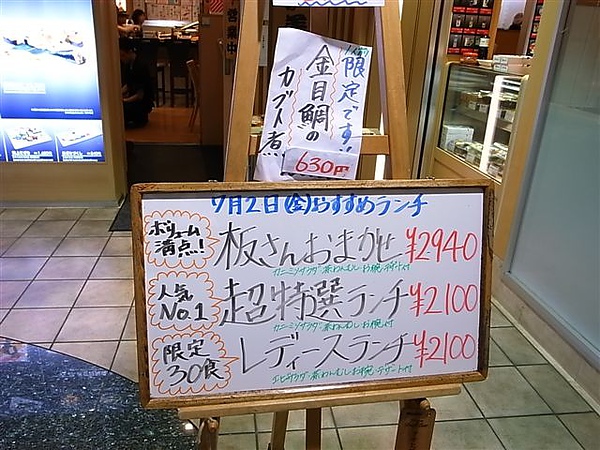 営業中
限定です!!
金目鯛の
カブト煮
630円
7月2日(金)おすすめランチ
ボリューム
満点!
板さんおまかせ ¥2940
カニミソサラダ・茶わんむし・お椀・デザート付
人気
No.1
超特選ランチ ¥2100
カニミソサラダ・茶わんむし・お椀付
限定
30食
レディースランチ ¥2100
エビサラダ・茶わんむし・お椀・デザート付